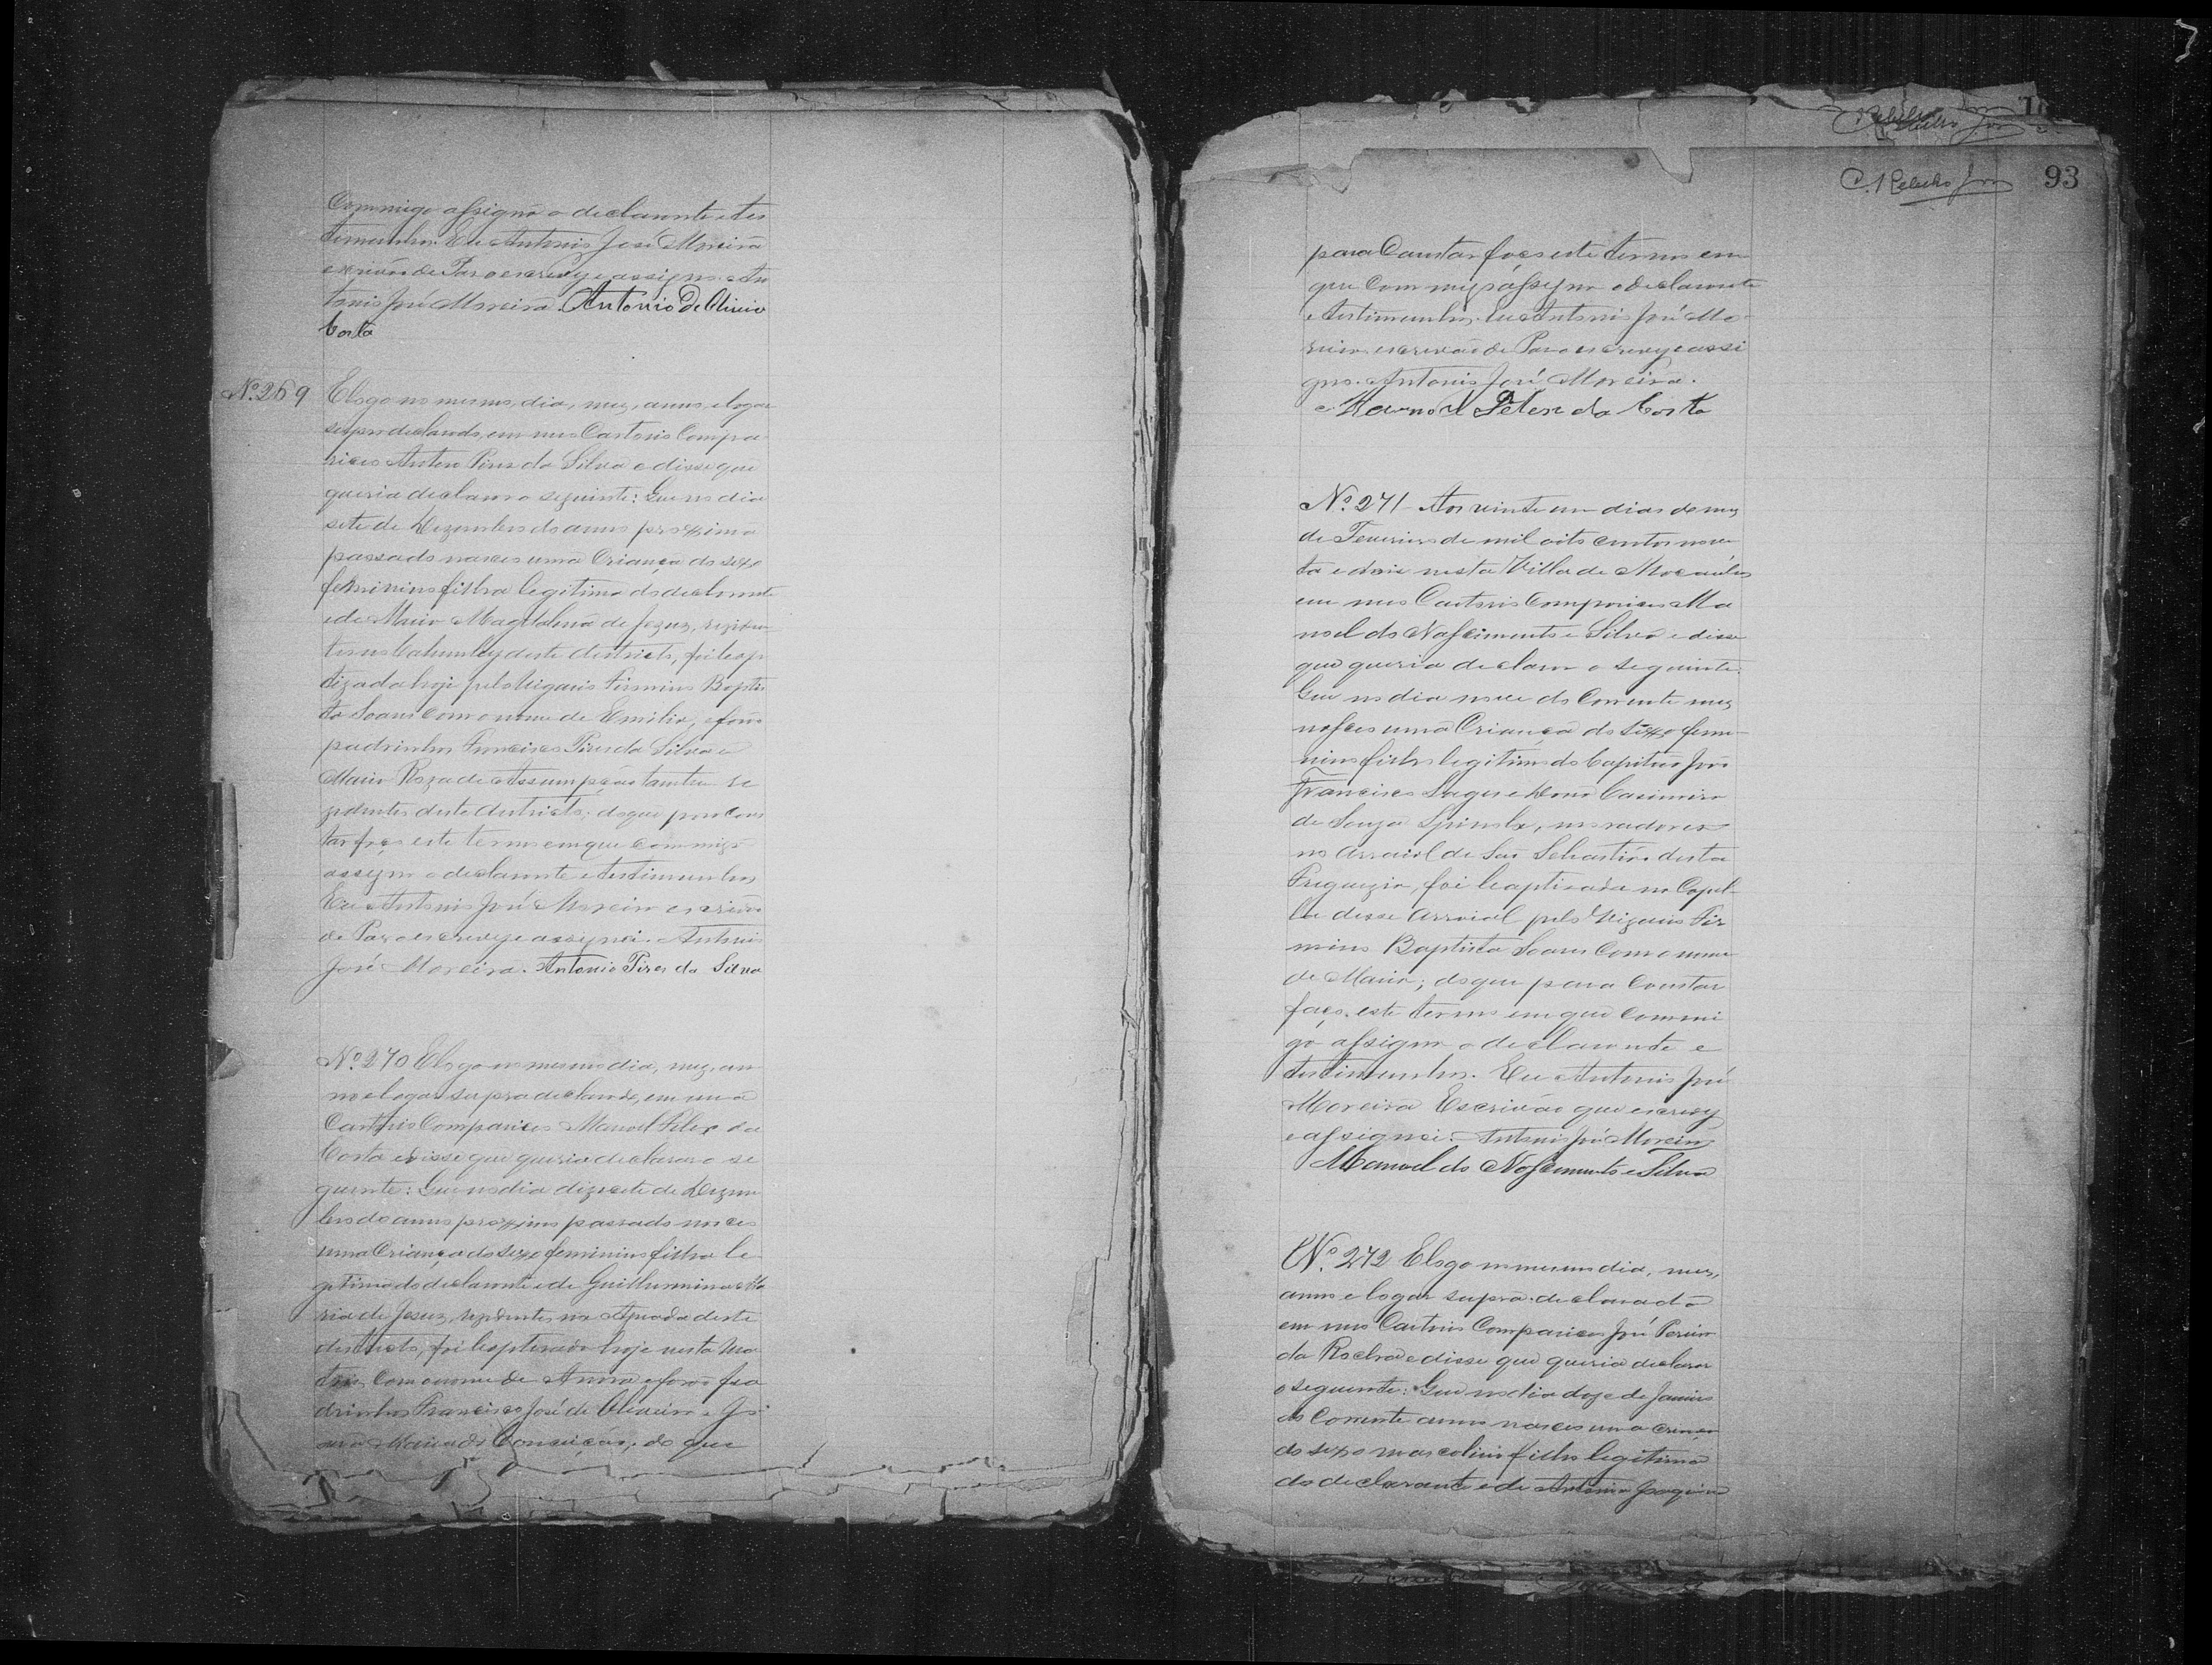 Commigo assigna o declarante e tes
timunhas. Eu Antonio José Moreira
escrivão de Paz o escrevy e assigno. An
tonio José Moreira. Antonio de Oliveira
Costa
Nº 269 E logo no mesmo dia, mez, anno, e logar
supra declarado, em meu Cartorio Compa
receo Antonio Pires da Silva e disse que
queria declarar o seguinte: Que no dia
sete de Dezembro do anno proximo
passado nasceo uma Criança do sexo
feminino filha legitima do declarante
e de Maria Magdalena de Jezus, reziden
tes no deste districto, foi bap
tizada hoje pelo Vigario Firmino Baptis
ta Soares com o nome de Emilia, e forão
padrinhos Francisco Pires da Silva e
Maria Roza de Assumpção tambem re
zidentes deste districto; do que para Cons
tar faço este termo em que commigo
assigna o declarante e testimunhas
Eu Antonio José Moreira escrivão
de Paz o escrevy e assignei. Antonio
José Moreira. Antonio Pires da Silva
Nº 270 E logo no mesmo dia, mez, an
no e logar supra declarado, em meu
Cartorio Compareceo Manoel Felex da
Costa e disse que queria declarar o se
guinte: Que no dia dizasete de Dezem
bro do anno proximo passado nasceo
uma Criança do sexo feminino filha le
gitima do declarante e de Guilhermina Ma
ria de Jesuz, rezidentes na deste
districto, foi baptizada hoje nesta Ma
triz com o nome de Anna e forão pa
drinhos Francisco José de Oliveira e
Maria da Conceição; do que
C. Rebello Jor 93
para Constar faço este termo em
que Commigo assigna o declarante
e testimunhas. Eu Antonio José Mo
reira escrivão de Paz o escrevy e assi
gno. Antonio José Moreira.
Manoel Felex da Costa
Nº 271 Aos vinte um dias do mez
de Fevereiro de mil oito centos noven
ta e dois nesta Villa de Macaubas
em meu Cartorio Compareceo Ma
noel do Nascimento e Silva e disse
que queria declarar o seguinte:
Que no dia nove do Corrente mez
nasceo uma Criança do sexo femi
nino filha legitima do Capitão João
Francisco e Dona Casimira
de Souza Spinola, moradores
no Arraial de São Sebastião desta
Freguezia, foi baptizada na Capel
la desse Arraial pelo Vigario Fir
mino Baptista Soares com o nome
de Maria; do que para Constar
faço este termo em que Commi
go assigna o declarante e
testimunhas. Eu Antonio José
Moreira Escrivão que escrevy
e assignei. Antonio José Moreira
Manoel do Nascimento e Silva
Nº 272 E logo no mesmo dia, mez,
anno e logar supra declarado
em meu Cartorio Compareceo José Pereira
da Rocha e disse que queria declarar
o seguinte: Que no dia doze de Janeiro
do Corrente anno nasceo uma criança
do sexo mascolino filho legitimo
do declarante e de Antonia Joaquina